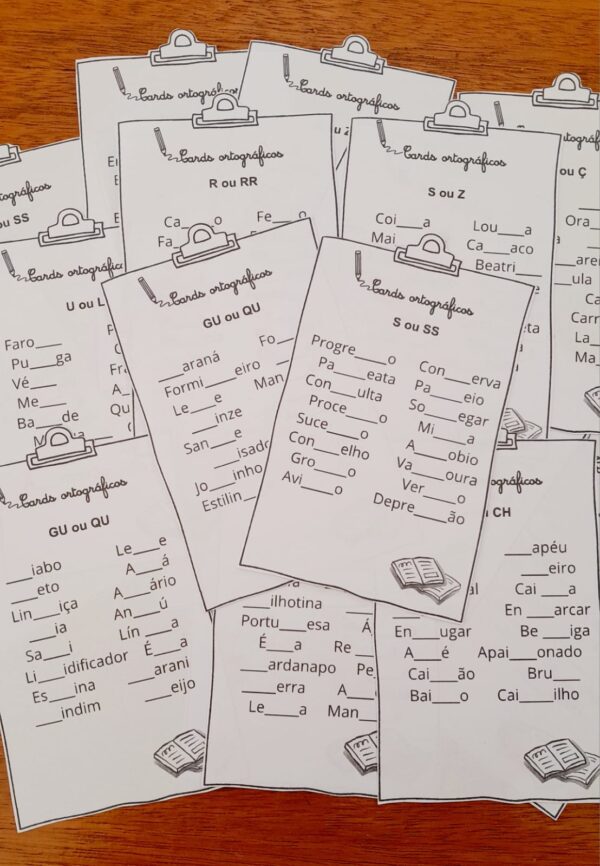 Cards ortográficos
Cards ortográficos
Cards ortográficos
R ou RR
Ca___o Fe___o
Fa
Cards ortográficos
S ou Z
Coi___a Lou___a
Mai Ca___aco
Beatri___
ou Ç
Ora
ula
Ca
Carr
La
Ma
ou SS
Cards ortográficos
U ou L
Faro___
Pu___ga
Vé___
Me___
Ba___de
Cards ortográficos
GU ou QU
___araná Fo
Formi___eiro Man
Le___e
___inze
San___e
___isado
Jo___inho
Estilin
Cards ortográficos
S ou SS
Progre____o Con____erva
Pa____eata Pa____eio
Con____ulta So____egar
Proce____o Mi____a
Suce____o A____obio
Con____elho Va____oura
Gro____o Ver____o
Avi____o Depre____ão
Cards ortográficos
GU ou QU
___iabo Le___e
___eto A___á
Lin___iça A___ário
___ia An___ú
Sa___i Lín___a
Li___idificador É___a
Es___ina ___arani
___indim ___eijo
___ilhotina
Portu___esa Á
É___a Re
____ardanapo Pe
____erra A
Le____a Man
ográficos
CH
___apéu
___eiro
al Cai___a
En___arcar
En___ugar Be___iga
A___é Apai___onado
Cai___ão Bru___
Bai___o Cai___ilho